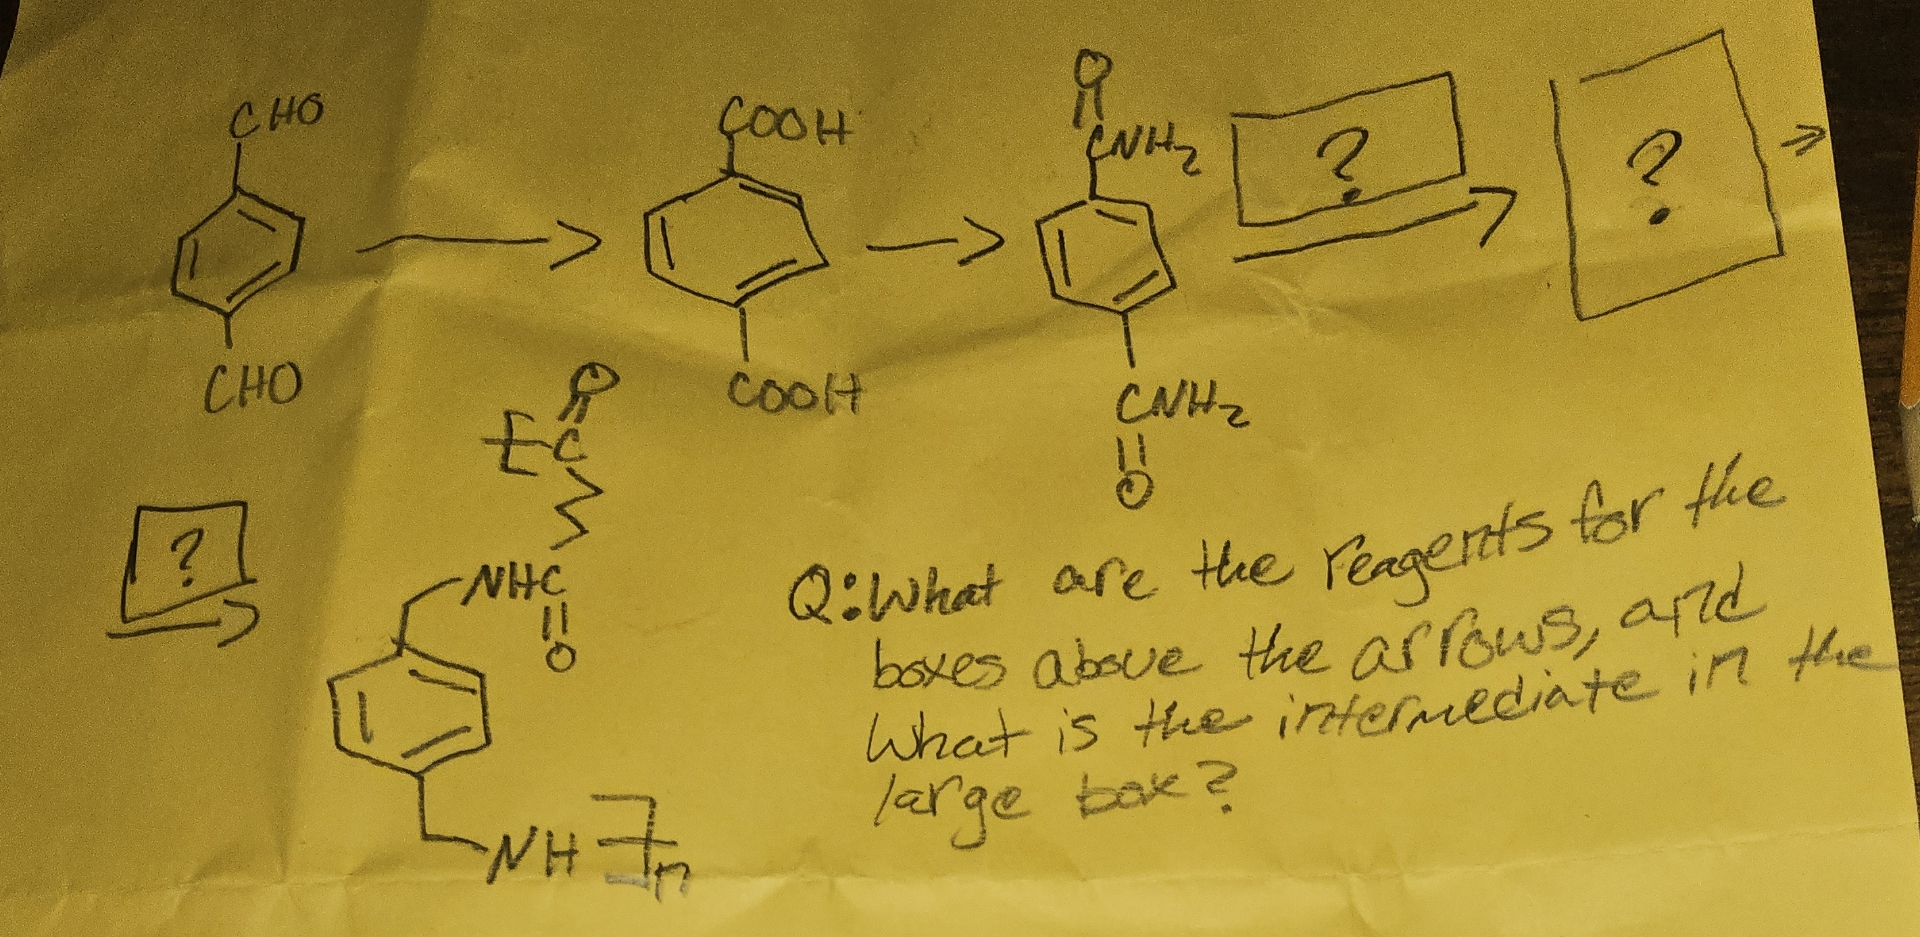 CHO
CHO
COOH
COOH
O
CNH2
CNH2
O
?
?
?
O
C
NHC
O
NH
n
Q: What are the reagents for the
boxes above the arrows, and
What is the intermediate in the
large box?